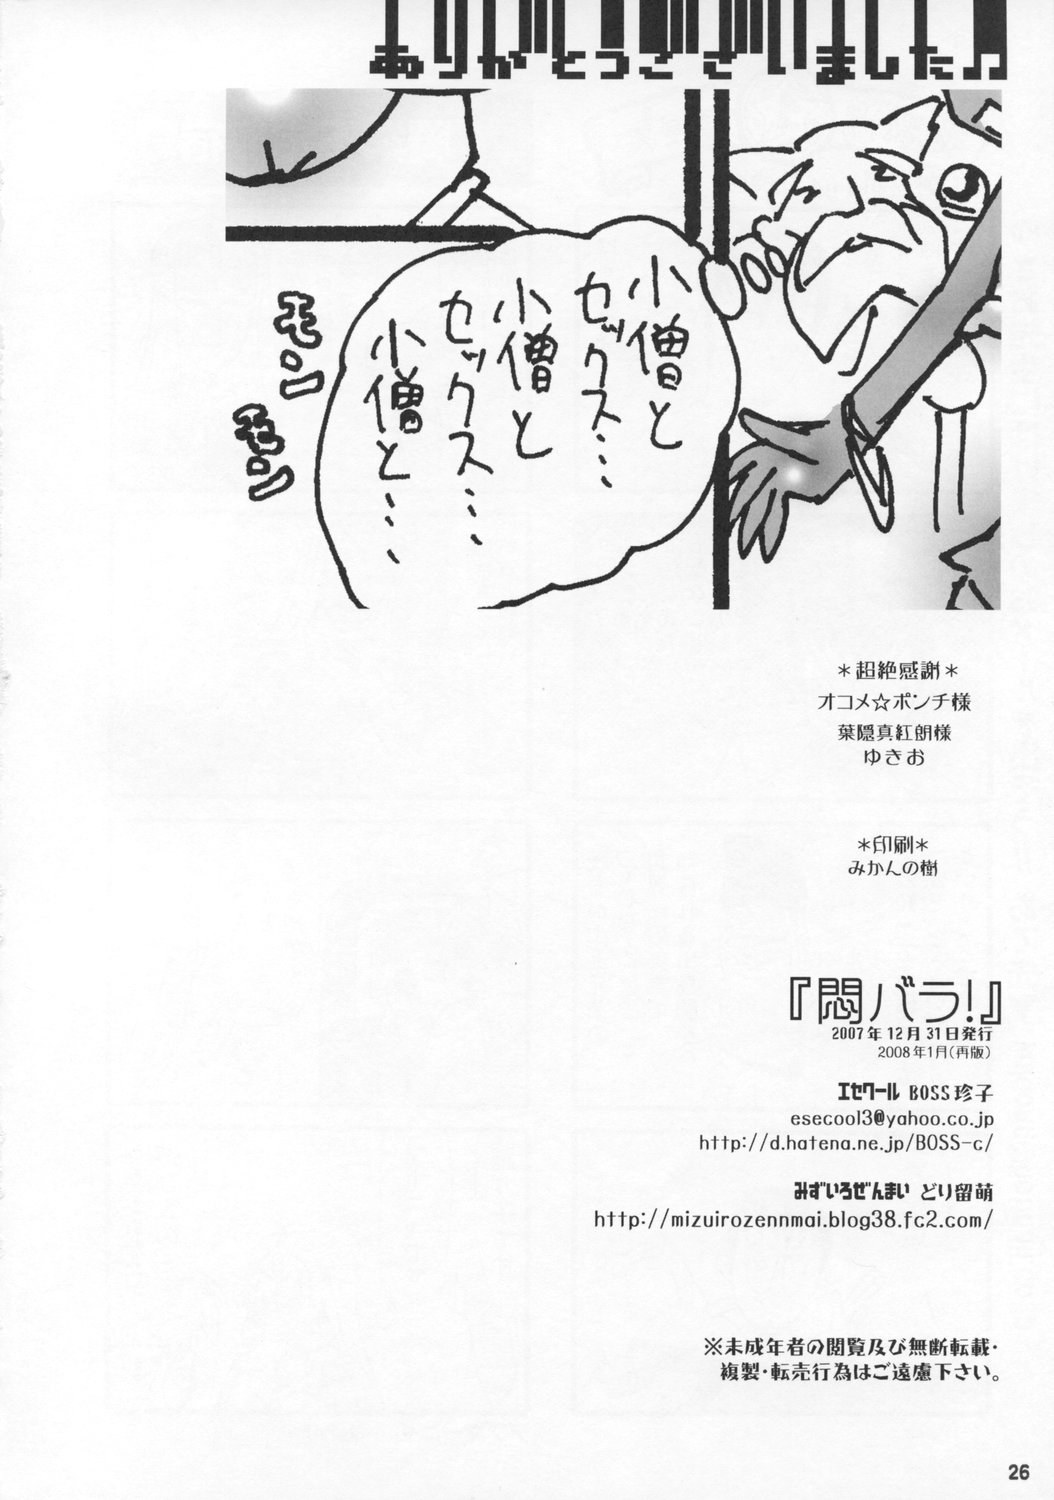 ありがとうございました♫
小僧と
セックス…
小僧と
セックス…
小僧と…
モンン
モンン
＊超絶感謝＊
オコメ☆ポンチ様
葉隠真紅朗様
ゆきお
＊印刷＊
みかんの樹
『悶バラ!』
2007年12月31日発行
2008年1月(再版)
エセクール BOSS珍子
esecool3@yahoo.co.jp
http://d.hatena.ne.jp/BOSS-c/
みずいろぜんまい どり留萌
http://mizuirozennmai.blog38.fc2.com/
※未成年者の閲覧及び無断転載・
複製・転売行為はご遠慮下さい。
26